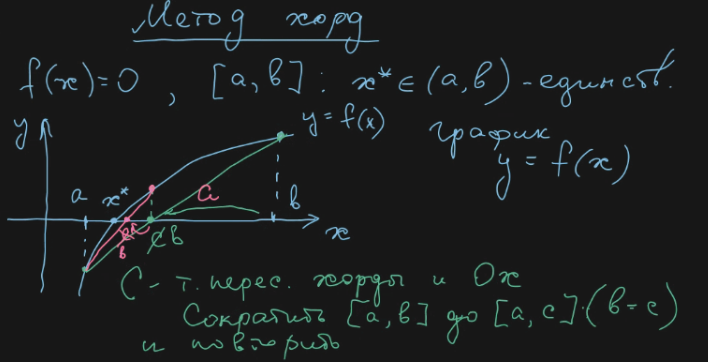 Метод хорд
f(x)=0 , [a,b] : x* ∈ (a,b) - единств.
y
y = f(x)
график
y = f(x)
a
x*
b
x
b
b
C - т. перес. хорды и Ox
Сократить [a,b] до [a,c] . (b=c)
и повторить